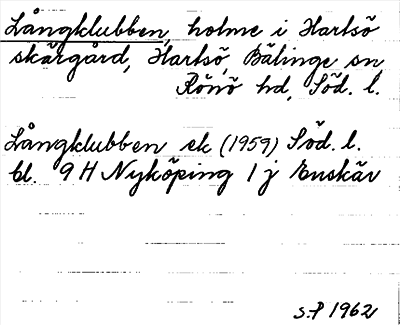 Långklubben, holme i Hartsö
skärgård, Hartsö, Bälinge sn,
Rönö hd, Söd. l.
Långklubben ek (1959) Söd. l.
bl. 9 H Nyköping 1 j Enskär
S.P 1962